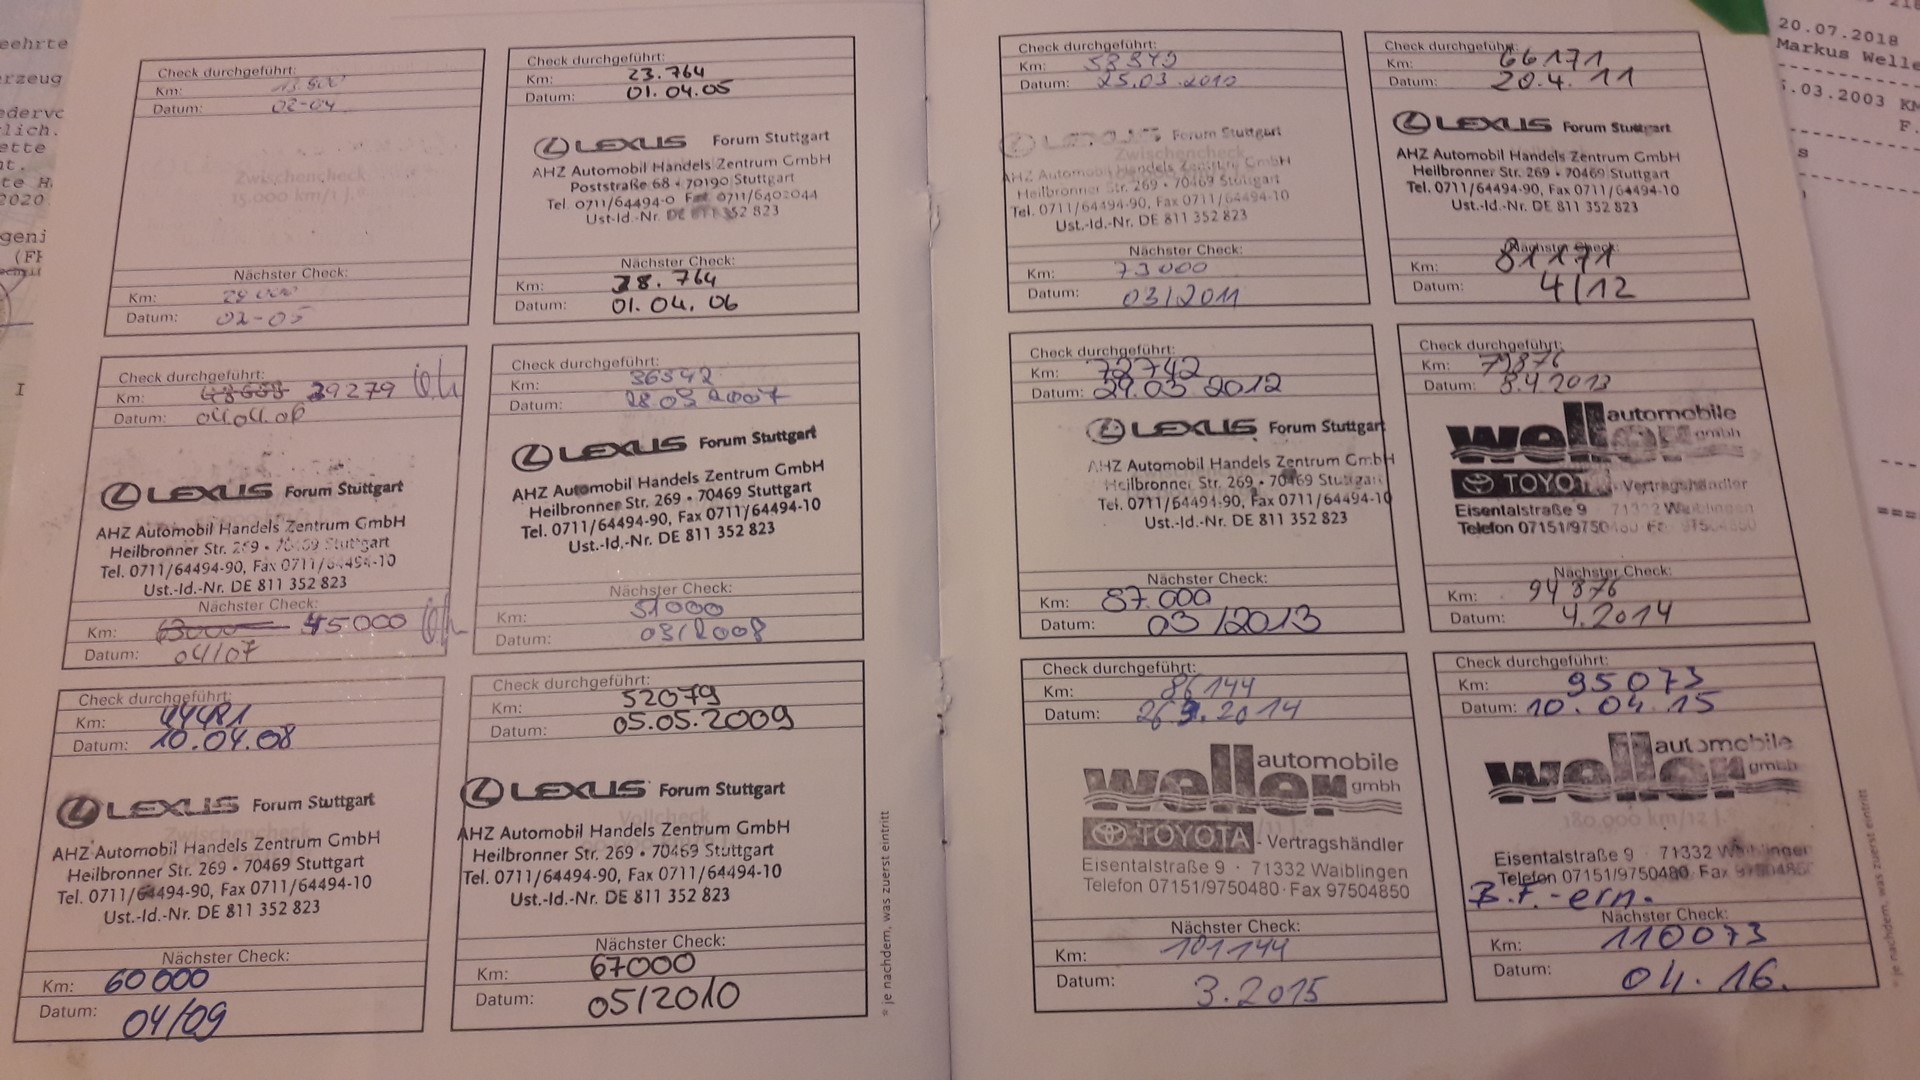 eehrte
erzeug
ederve
lich.
ette
te H
2020.
geni
I
Check durchgeführt:
Km:
Datum: 02-04
Zwischencheck
15.000 km/1 J.*
Nächster Check:
Km:
Datum: 02-05
Check durchgeführt:
Km: 23.764
Datum: 01.04.05
LEXUS Forum Stuttgart
AHZ Automobil Handels Zentrum GmbH
Poststraße 68 • 70190 Stuttgart
Tel. 0711/64494-0 Fax 0711/6402044
Ust-Id.-Nr. DE 811 352 823
Nächster Check:
Km: 38.764
Datum: 01.04.06
Check durchgeführt:
Km: 39279
Datum: 04.04.06
LEXUS Forum Stuttgart
AHZ Automobil Handels Zentrum GmbH
Heilbronner Str. 269 • 70469 Stuttgart
Tel. 0711/64494-90, Fax 0711/64494-10
Ust.-Id.-Nr. DE 811 352 823
Nächster Check:
Km: 63000 45000
Datum: 04/07
Check durchgeführt:
Km: 36342
Datum: 28.03.2007
LEXUS Forum Stuttgart
AHZ Automobil Handels Zentrum GmbH
Heilbronner Str. 269 • 70469 Stuttgart
Tel. 0711/64494-90, Fax 0711/64494-10
Ust.-Id.-Nr. DE 811 352 823
Nächster Check:
Km: 51000
Datum: 03/2008
Check durchgeführt:
Km: 44481
Datum: 10.04.08
LEXUS Forum Stuttgart
Zwischencheck
AHZ Automobil Handels Zentrum GmbH
Heilbronner Str. 269 • 70469 Stuttgart
Tel. 0711/64494-90, Fax 0711/64494-10
Ust.-Id.-Nr. DE 811 352 823
Nächster Check:
Km: 60000
Datum: 04/09
Check durchgeführt:
Km: 52079
Datum: 05.05.2009
LEXUS Forum Stuttgart
Vollcheck
AHZ Automobil Handels Zentrum GmbH
Heilbronner Str. 269 • 70469 Stuttgart
Tel. 0711/64494-90, Fax 0711/64494-10
Ust.-Id.-Nr. DE 811 352 823
Nächster Check:
Km: 67000
Datum: 05/2010
* je nachdem, was zuerst eintritt
Check durchgeführt:
Km: 58349
Datum: 25.03.2010
LEXUS Forum Stuttgart
Zwischencheck
AHZ Automobil Handels Zentrum GmbH
Heilbronner Str. 269 • 70469 Stuttgart
Tel. 0711/64494-90, Fax 0711/64494-10
Ust.-Id.-Nr. DE 811 352 823
Nächster Check:
Km: 73000
Datum: 03/2011
Check durchgeführt:
Km: 66171
Datum: 20.4.11
LEXUS Forum Stuttgart
AHZ Automobil Handels Zentrum GmbH
Heilbronner Str. 269 • 70469 Stuttgart
Tel. 0711/64494-90, Fax 0711/64494-10
Ust.-Id.-Nr. DE 811 352 823
Nächster Check:
Km: 81171
Datum: 4/12
Check durchgeführt:
Km: 72742
Datum: 29.03.2012
LEXUS Forum Stuttgart
AHZ Automobil Handels Zentrum GmbH
Heilbronner Str. 269 • 70469 Stuttgart
Tel. 0711/64494-90, Fax 0711/64494-10
Ust.-Id.-Nr. DE 811 352 823
Nächster Check:
Km: 87.000
Datum: 03/2013
Check durchgeführt:
Km: 79876
Datum: 8.4.2013
weller automobile gmbh
TOYOTA - Vertragshändler
Eisentalstraße 9 · 71332 Waiblingen
Telefon 07151/9750480 · Fax 97504850
Nächster Check:
Km: 94876
Datum: 4.2014
Check durchgeführt:
Km: 86144
Datum: 26.3.2014
weller automobile gmbh
TOYOTA - Vertragshändler
Eisentalstraße 9 · 71332 Waiblingen
Telefon 07151/9750480 · Fax 97504850
Nächster Check:
Km: 101144
Datum: 3.2015
Check durchgeführt:
Km: 95073
Datum: 10.04.15
weller automobile gmbh
180.000 km/12 J.*
Eisentalstraße 9 · 71332 Waiblingen
Telefon 07151/9750480 · Fax 97504850
B.F.-ern.
Nächster Check:
Km: 110073
Datum: 04.16.
* je nachdem, was zuerst eintritt
20.07.2018
Markus Welle
.03.2003 KM
F.
s